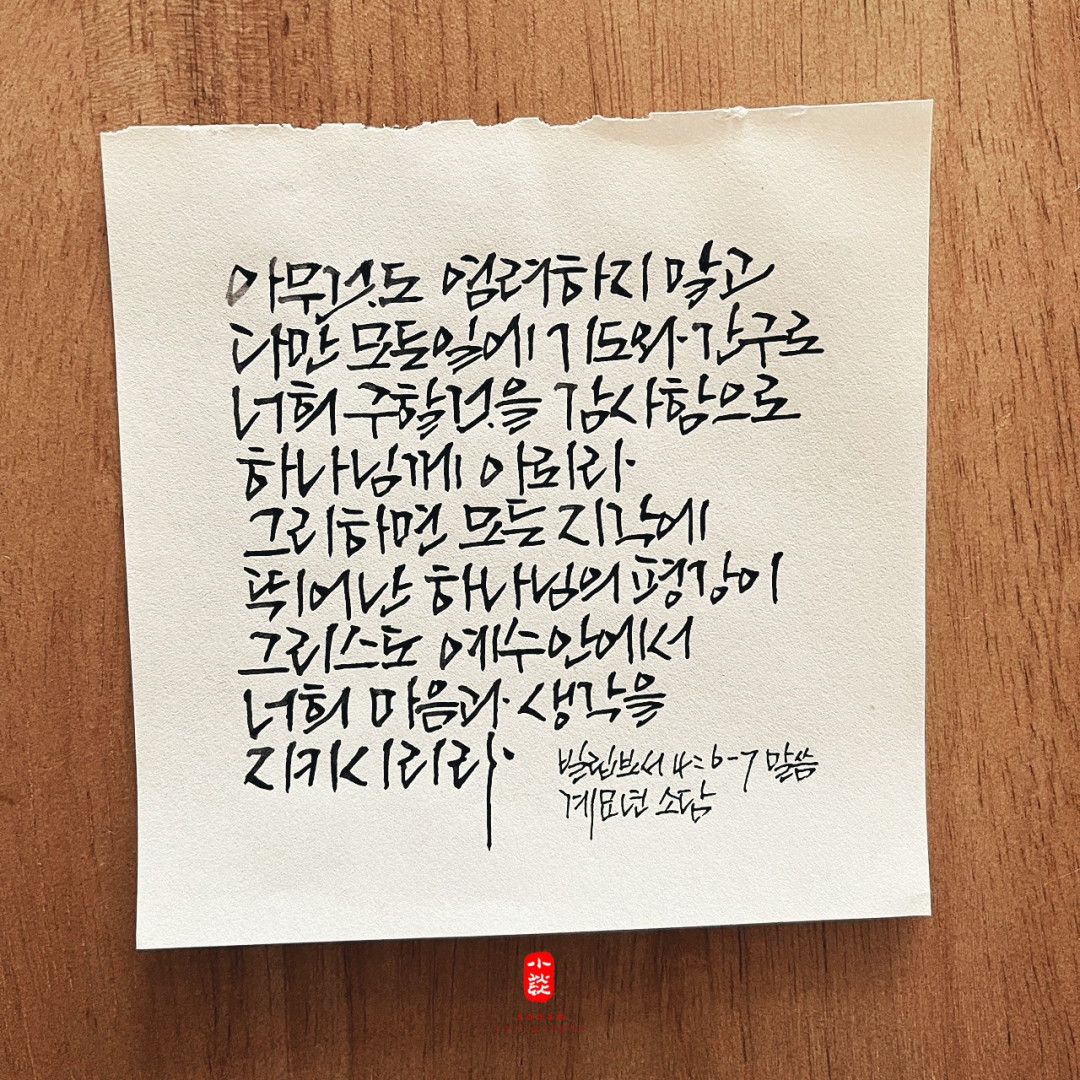 아무것도 염려하지 말고
다만 모든일에 기도와 간구로
너희 구할것을 감사함으로
하나님께 아뢰라
그리하면 모든 지각에
뛰어난 하나님의 평강이
그리스도 예수안에서
너희 마음과 생각을
지키시리라
빌립보서 4:6-7 말씀
계묘년 소담
小談